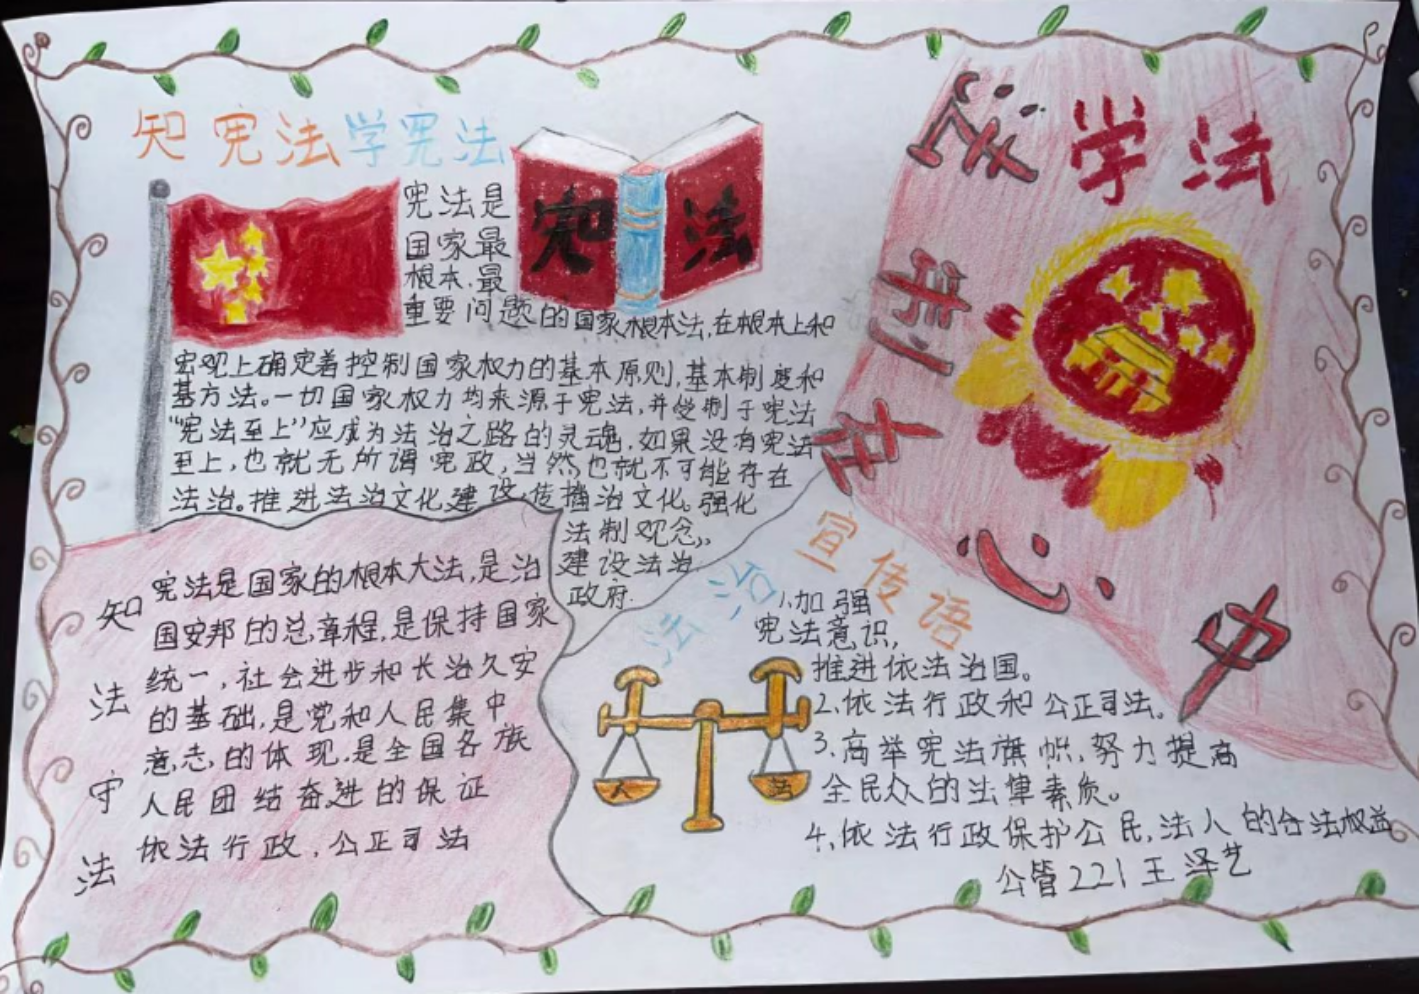 知宪法学宪法
宪法
宪法是
国家最
根本.最
重要问题的国家根本法,在根本上和
宏观上确定着控制国家权力的基本原则,基本制度和
基方法。一切国家权力均来源于宪法,并受制于宪法
"宪法至上"应成为法治之路的灵魂,如果没有宪法
至上,也就无所谓宪政,当然,也就不可能存在
法治。推进法治文化建设,传播治文化。强化
法制观念,
建设法治
政府.
学法
法制在心中
知法守法
宪法是国家的根本大法,是治
国安邦的总章程,是保持国家
统一,社会进步和长治久安
的基础,是党和人民集中
意志的体现,是全国各族
人民团结奋进的保证
依法行政,公正司法
法治宣传语
1.加强
宪法意识,
推进依法治国。
2.依法行政和公正司法。
3.高举宪法旗帜,努力提高
全民众的法律素质。
4.依法行政保护公民,法人的合法权益
人 法
公管221王泽艺